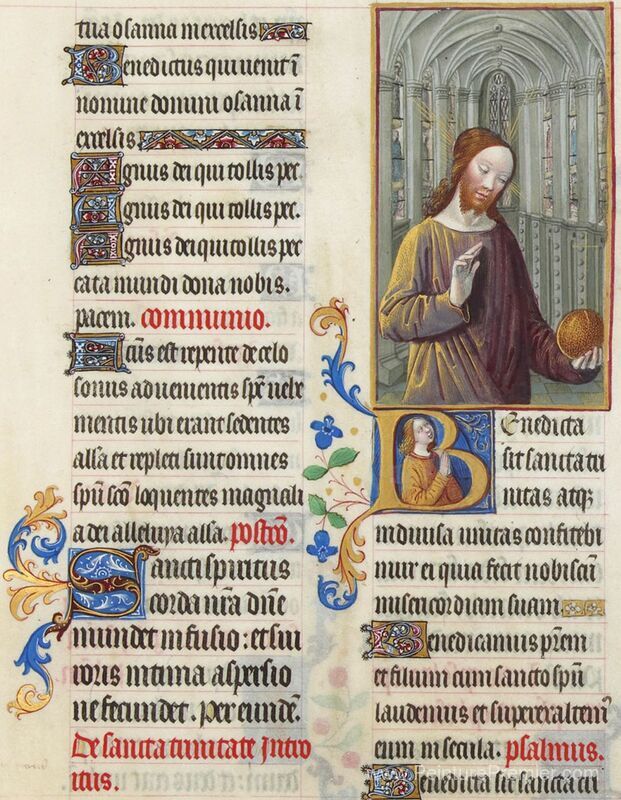 tua osanna in excelsis
Benedictus qui uenit ī
nomine domini osanna ī
excelsis.
Agnus dei qui tollis pec
Agnus dei qui tollis pec.
Agnus dei qui tollis pec
cata mundi dona nobis.
pacem. communio.
Factus est repente de celo
sonus aduenientis spūs uehe
mentis ubi erant sedentes
alla et repleti sunt omnes
spū scō loquentes magnali
a dei alleluya alla. postcō.
Sancti spiritus
corda nrā dñe
mundet infusio: et sui
roris intima aspersio
ne fecundet. Per eundē.
De sancta trinitate Intro
itus.
Benedicta
sit sancta tri
nitas atq3
indiuisa unitas confitebi
mur ei quia fecit nobiscū
misericordiam suam
Benedicamus prēm
et filium cum sancto spū
laudemus et superexaltem9
eum in secula. psalmus.
Benedicta sit sancta tri